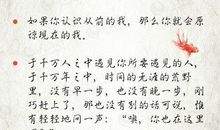 如果你认识从前的我，那么你就会原
谅现在的我。
于千万人之中遇见你所要遇见的人，
于千万年之中，时间的无涯的荒野
里，没有早一步，也没有晚一步，刚
巧赶上了，那也没有别的话可说，惟
有轻轻地问一声：“噢，你也在这里